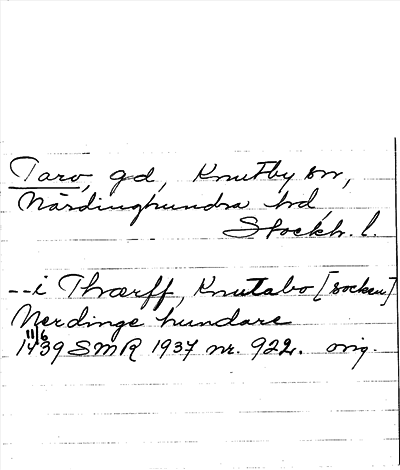 Tarv, gd, Knutby sn,
Närdinghundra hd,
Stockh. l.
--i Thærff, Knutabo [socken]
Nerdinge hundare
11/6
1439 SMR 1937 nr. 922. orig.